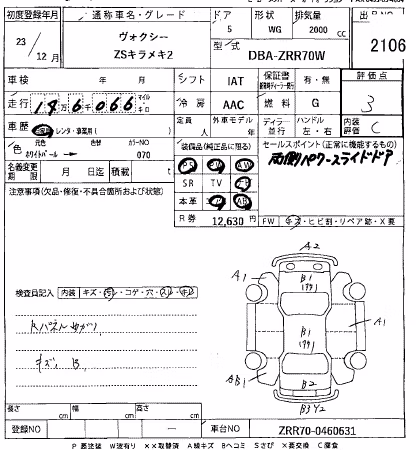 初度登録年月 通称車名・グレード ドア 形状 排気量 出品NO
23 / 12月 ヴォクシー ZSキラメキ2 5 WG 2000 cc 2106
型式 DBA-ZRR70W
車検 年 月 シフト IAT 保証書 有・無 評価点
走行 冷房 AAC 燃料 G 3
車歴 レンタ・事業用( 定員 人 外車モデル 年 ディーラー 並行 ハンドル 左・右 内装評価 C
色 元色 ホワイトパール 色替 カラーNO 070 装備品(純正品に限る) セールスポイント(正常に機能するもの)
PS PW AW 両側パワースライドドア
名義変更期限 月 日迄 積載 t SR TV
注意事項(欠品・修復・不具合箇所および状態) 本革 AB
R券 12,630 円 FW キズ・ヒビ割・リペア跡・X要
A2
検査員記入 内装 キズ・ ・コゲ・穴・
A1 B1
Rパネルめがり
B1 A1
キズ、B
AB1 B2
B3Y2
長さ cm 幅 cm 高さ cm
登録NO 車台NO ZRR70-0460631
P 要塗装 W波有り XX取替済 A線キズ Bヘコミ Sさび X要交換 C腐食